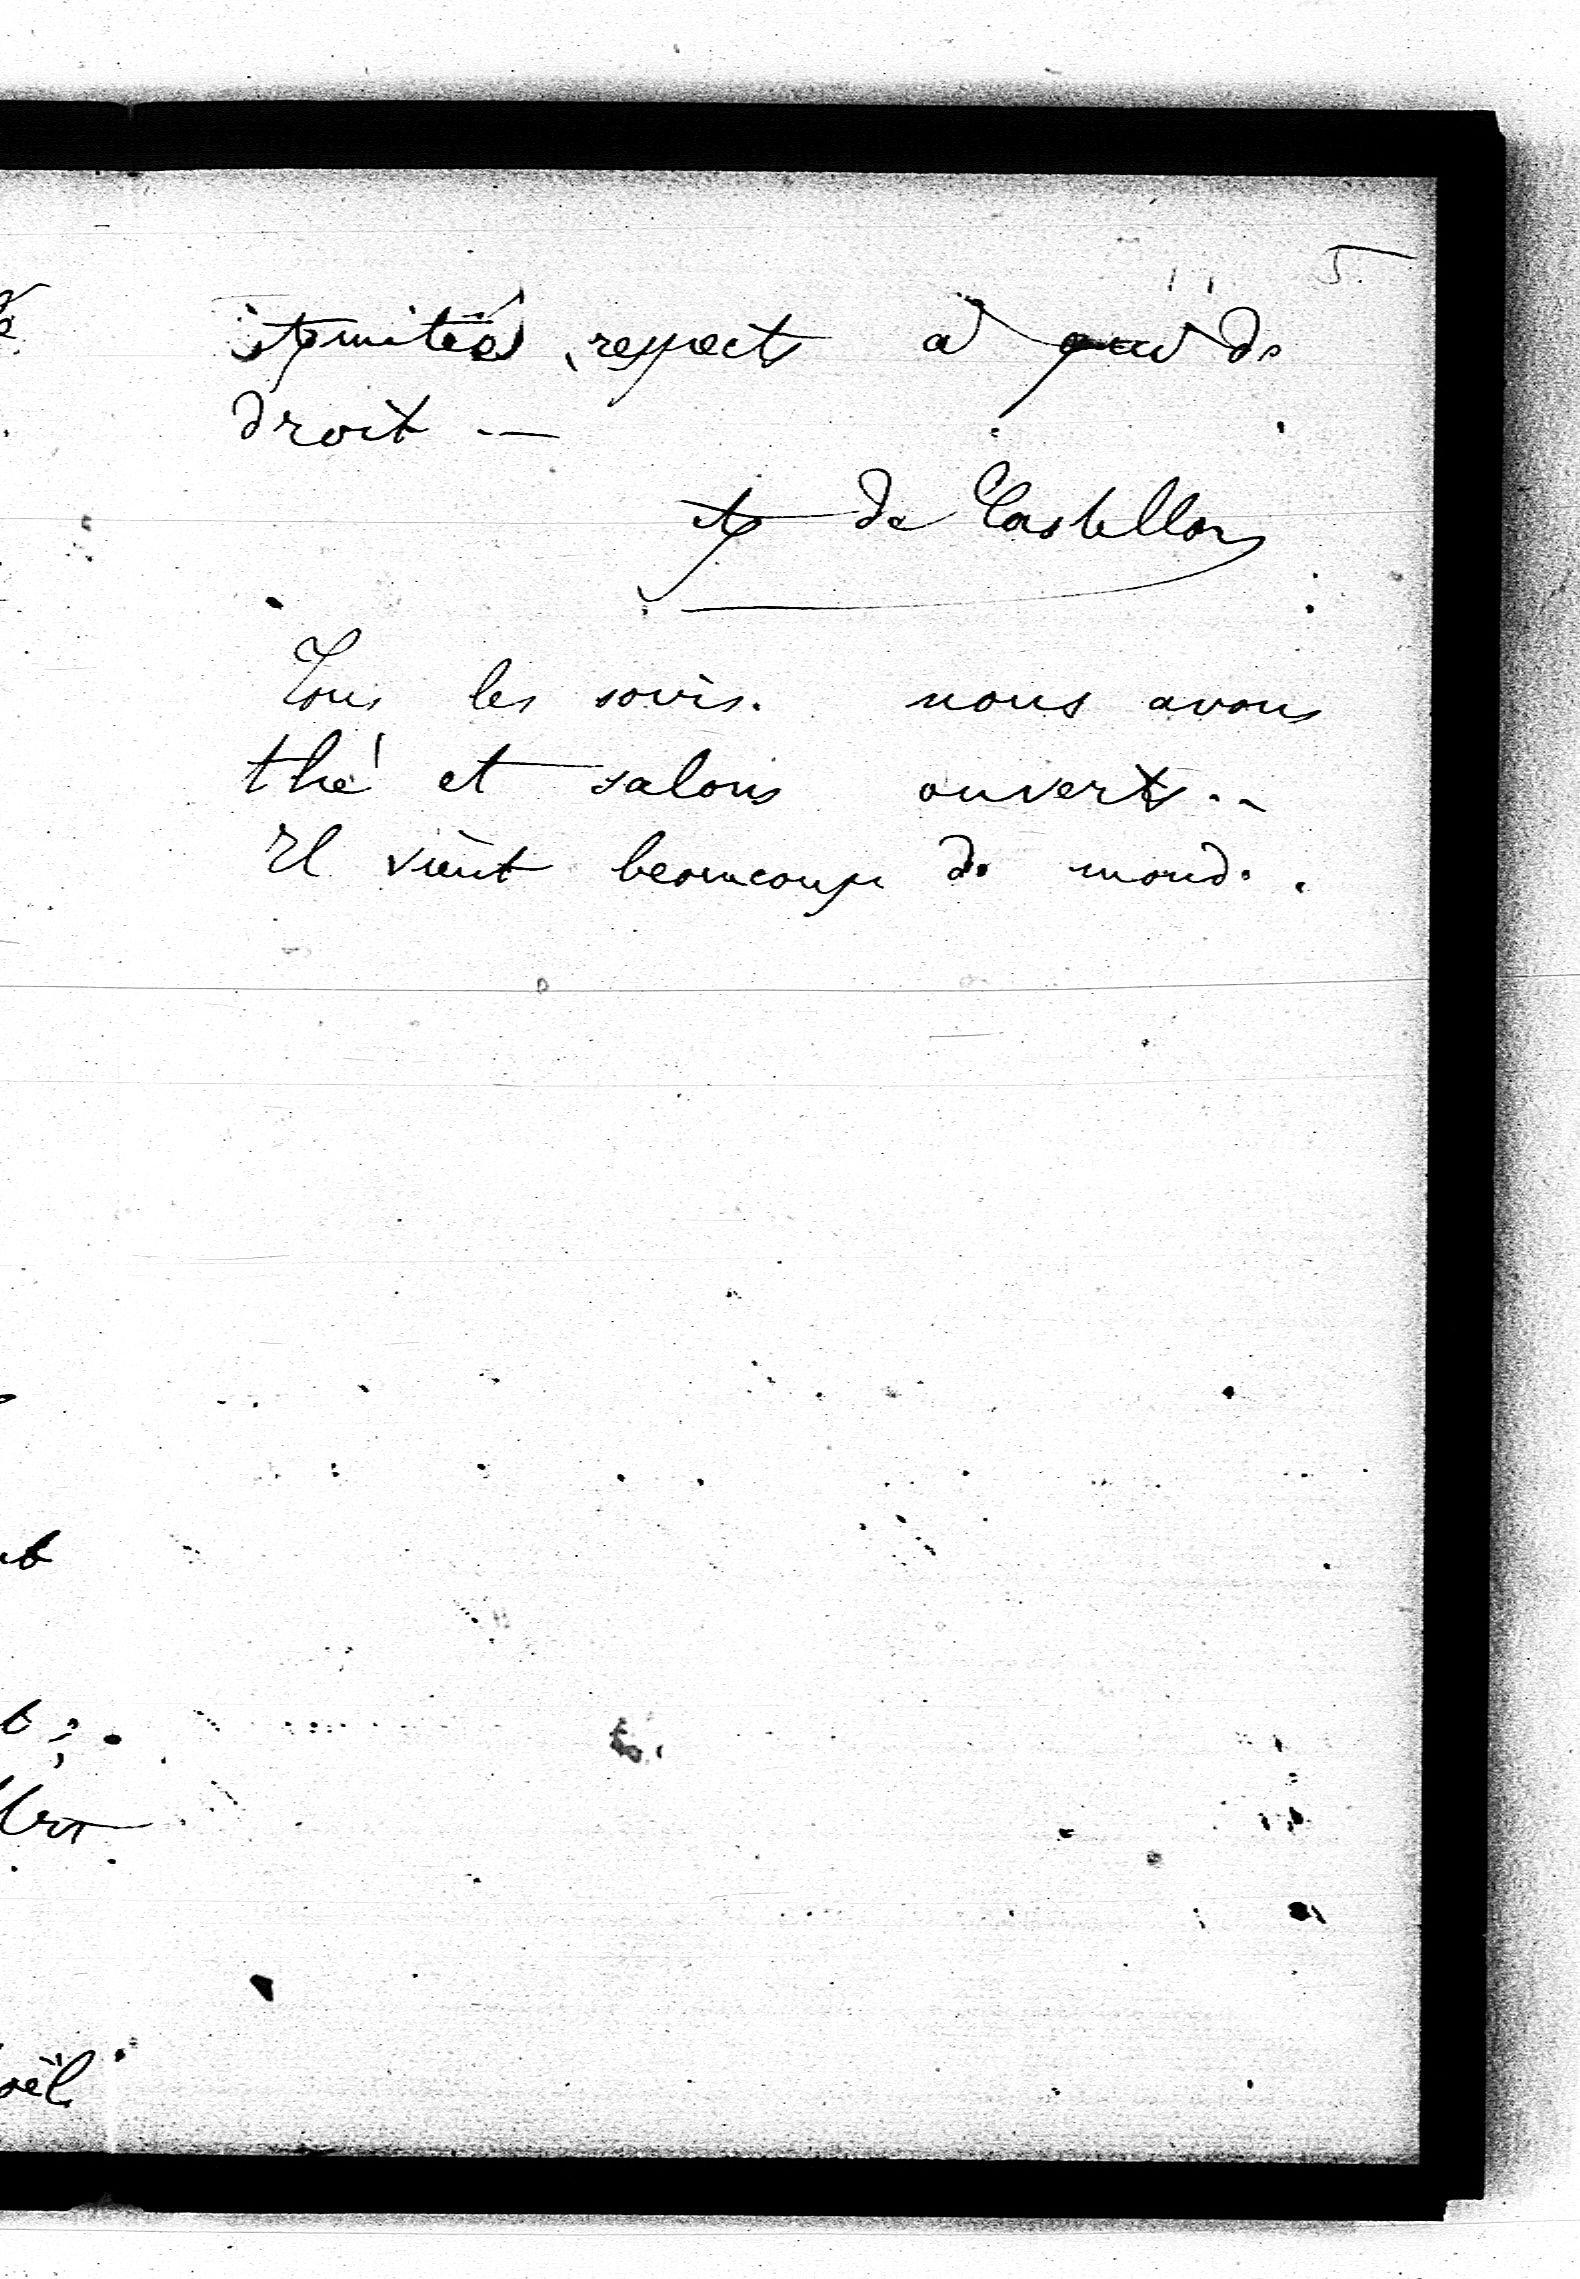 5
Amitiés, respects à qui de
droit —
A de Castellon
Tous les soirs. nous avons
thé et salons ouverts..
Il vient beaucoup de monde.
oël